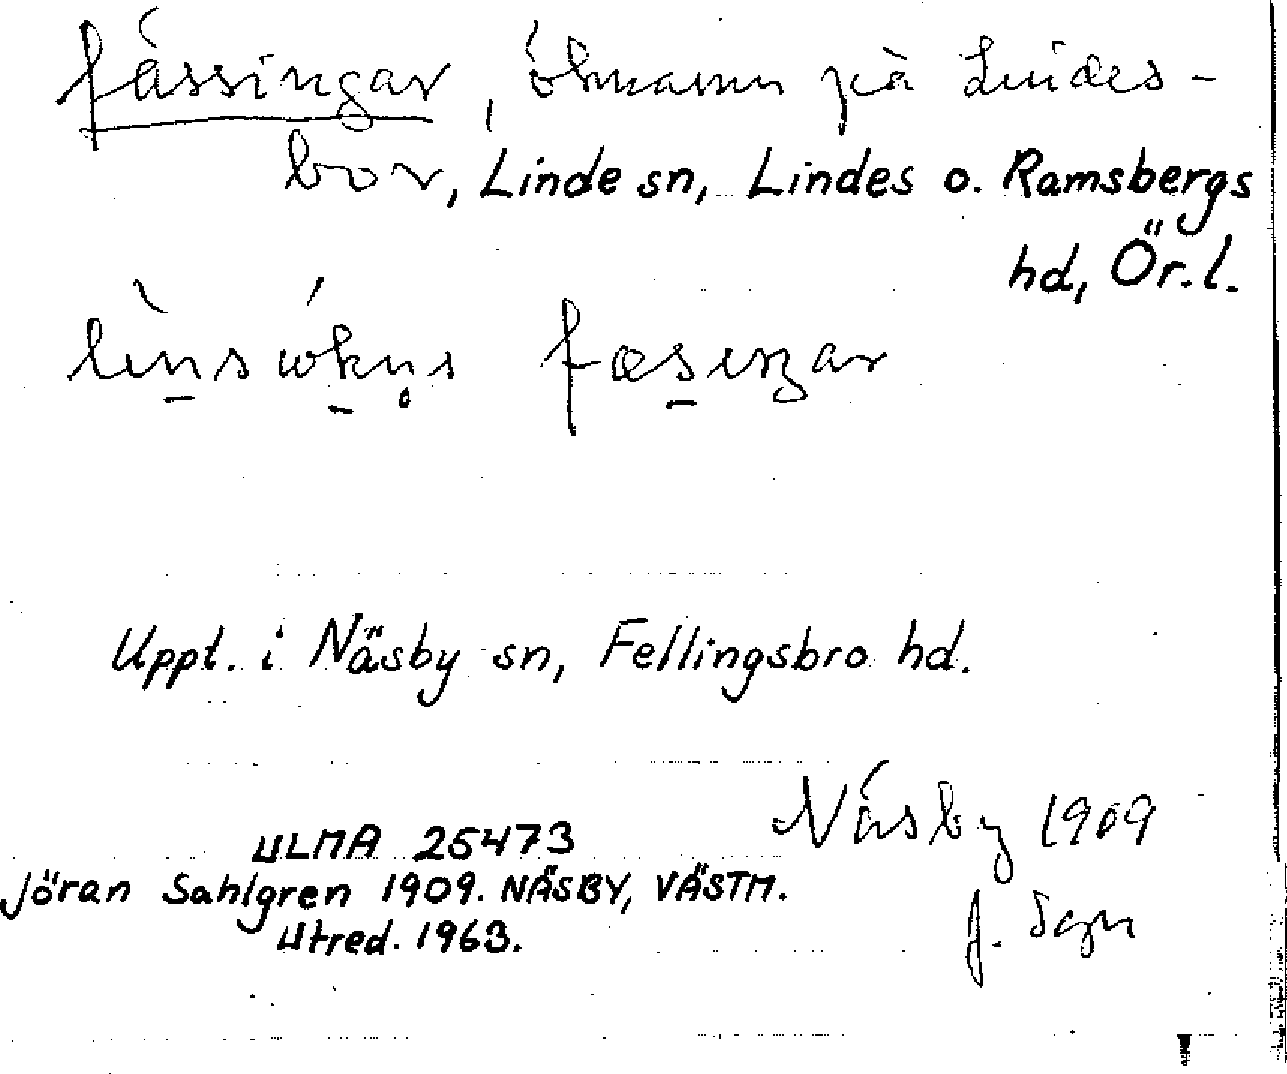 fässingar, öknamn på Lindes-
bor, Linde sn, Lindes o. Ramsbergs
hd, Ör.l.
Uppt. i Näsby sn, Fellingsbro hd.
Näsby 1909
ULMA 25473
Jöran Sahlgren 1909. NÄSBY, VÄSTM.
J. Sgn
Utred. 1963.